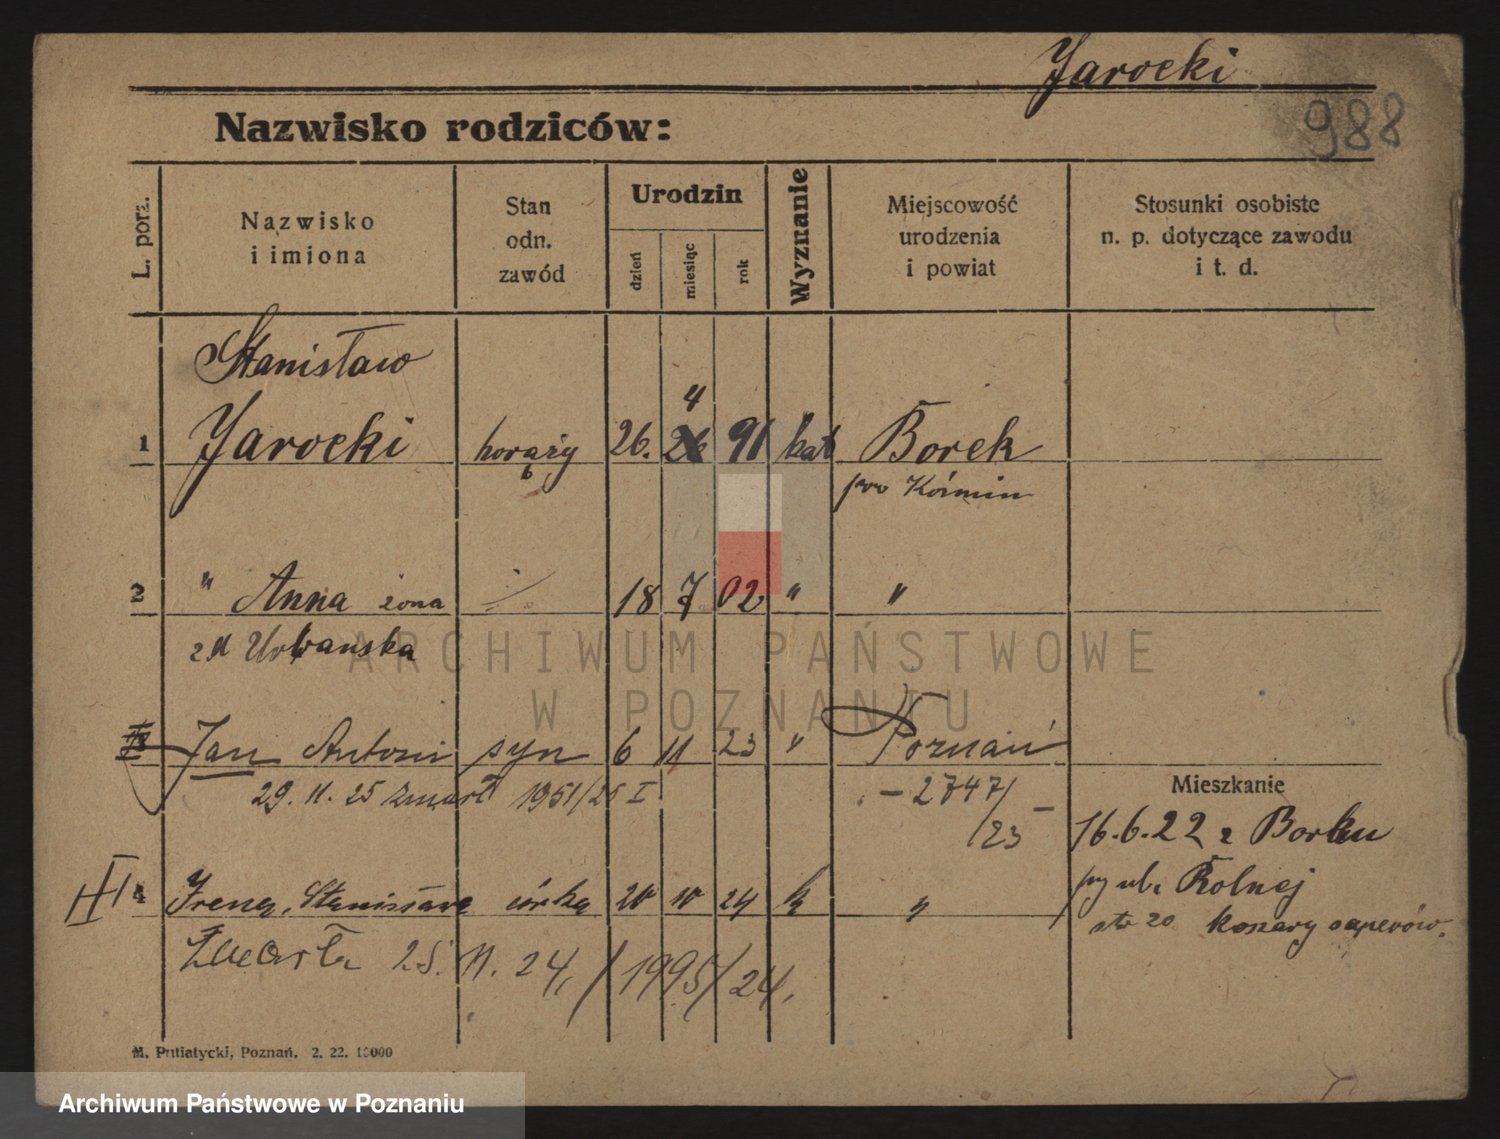 Jarocki
988
Nazwisko rodziców:
L. porz.
Nazwisko
i imiona
Stan
odn.
zawód
Urodzin
dzień
miesiąc
rok
Wyznanie
Miejscowość
urodzenia
i powiat
Stosunki osobiste
n. p. dotyczące zawodu
i t. d.
Stanisław
4
1 Jarocki horąży 26. 91 kat Borek
pow Koźmin
2 " Anna żona 18 7 02 " "
zd Urbanska
Jan Antoni syn 6 11 23 " Poznań
29. 11. 25 zmarł 1951/25 I - 2747/23 -
Mieszkanie
16.6.22 z Borku
przy ul. Rolnej
koszary saperów.
III 4 Irena, Stanisława córka 20 10 24 k "
Zmarła 25. 11. 24, /1995/24,
M. Putiatycki, Poznań. 2. 22. 10000
ARCHIWUM PAŃSTWOWE
W POZNANIU
Archiwum Państwowe w Poznaniu